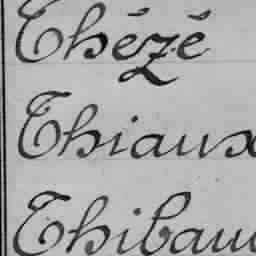 Thézé
Thiaux
Thibau